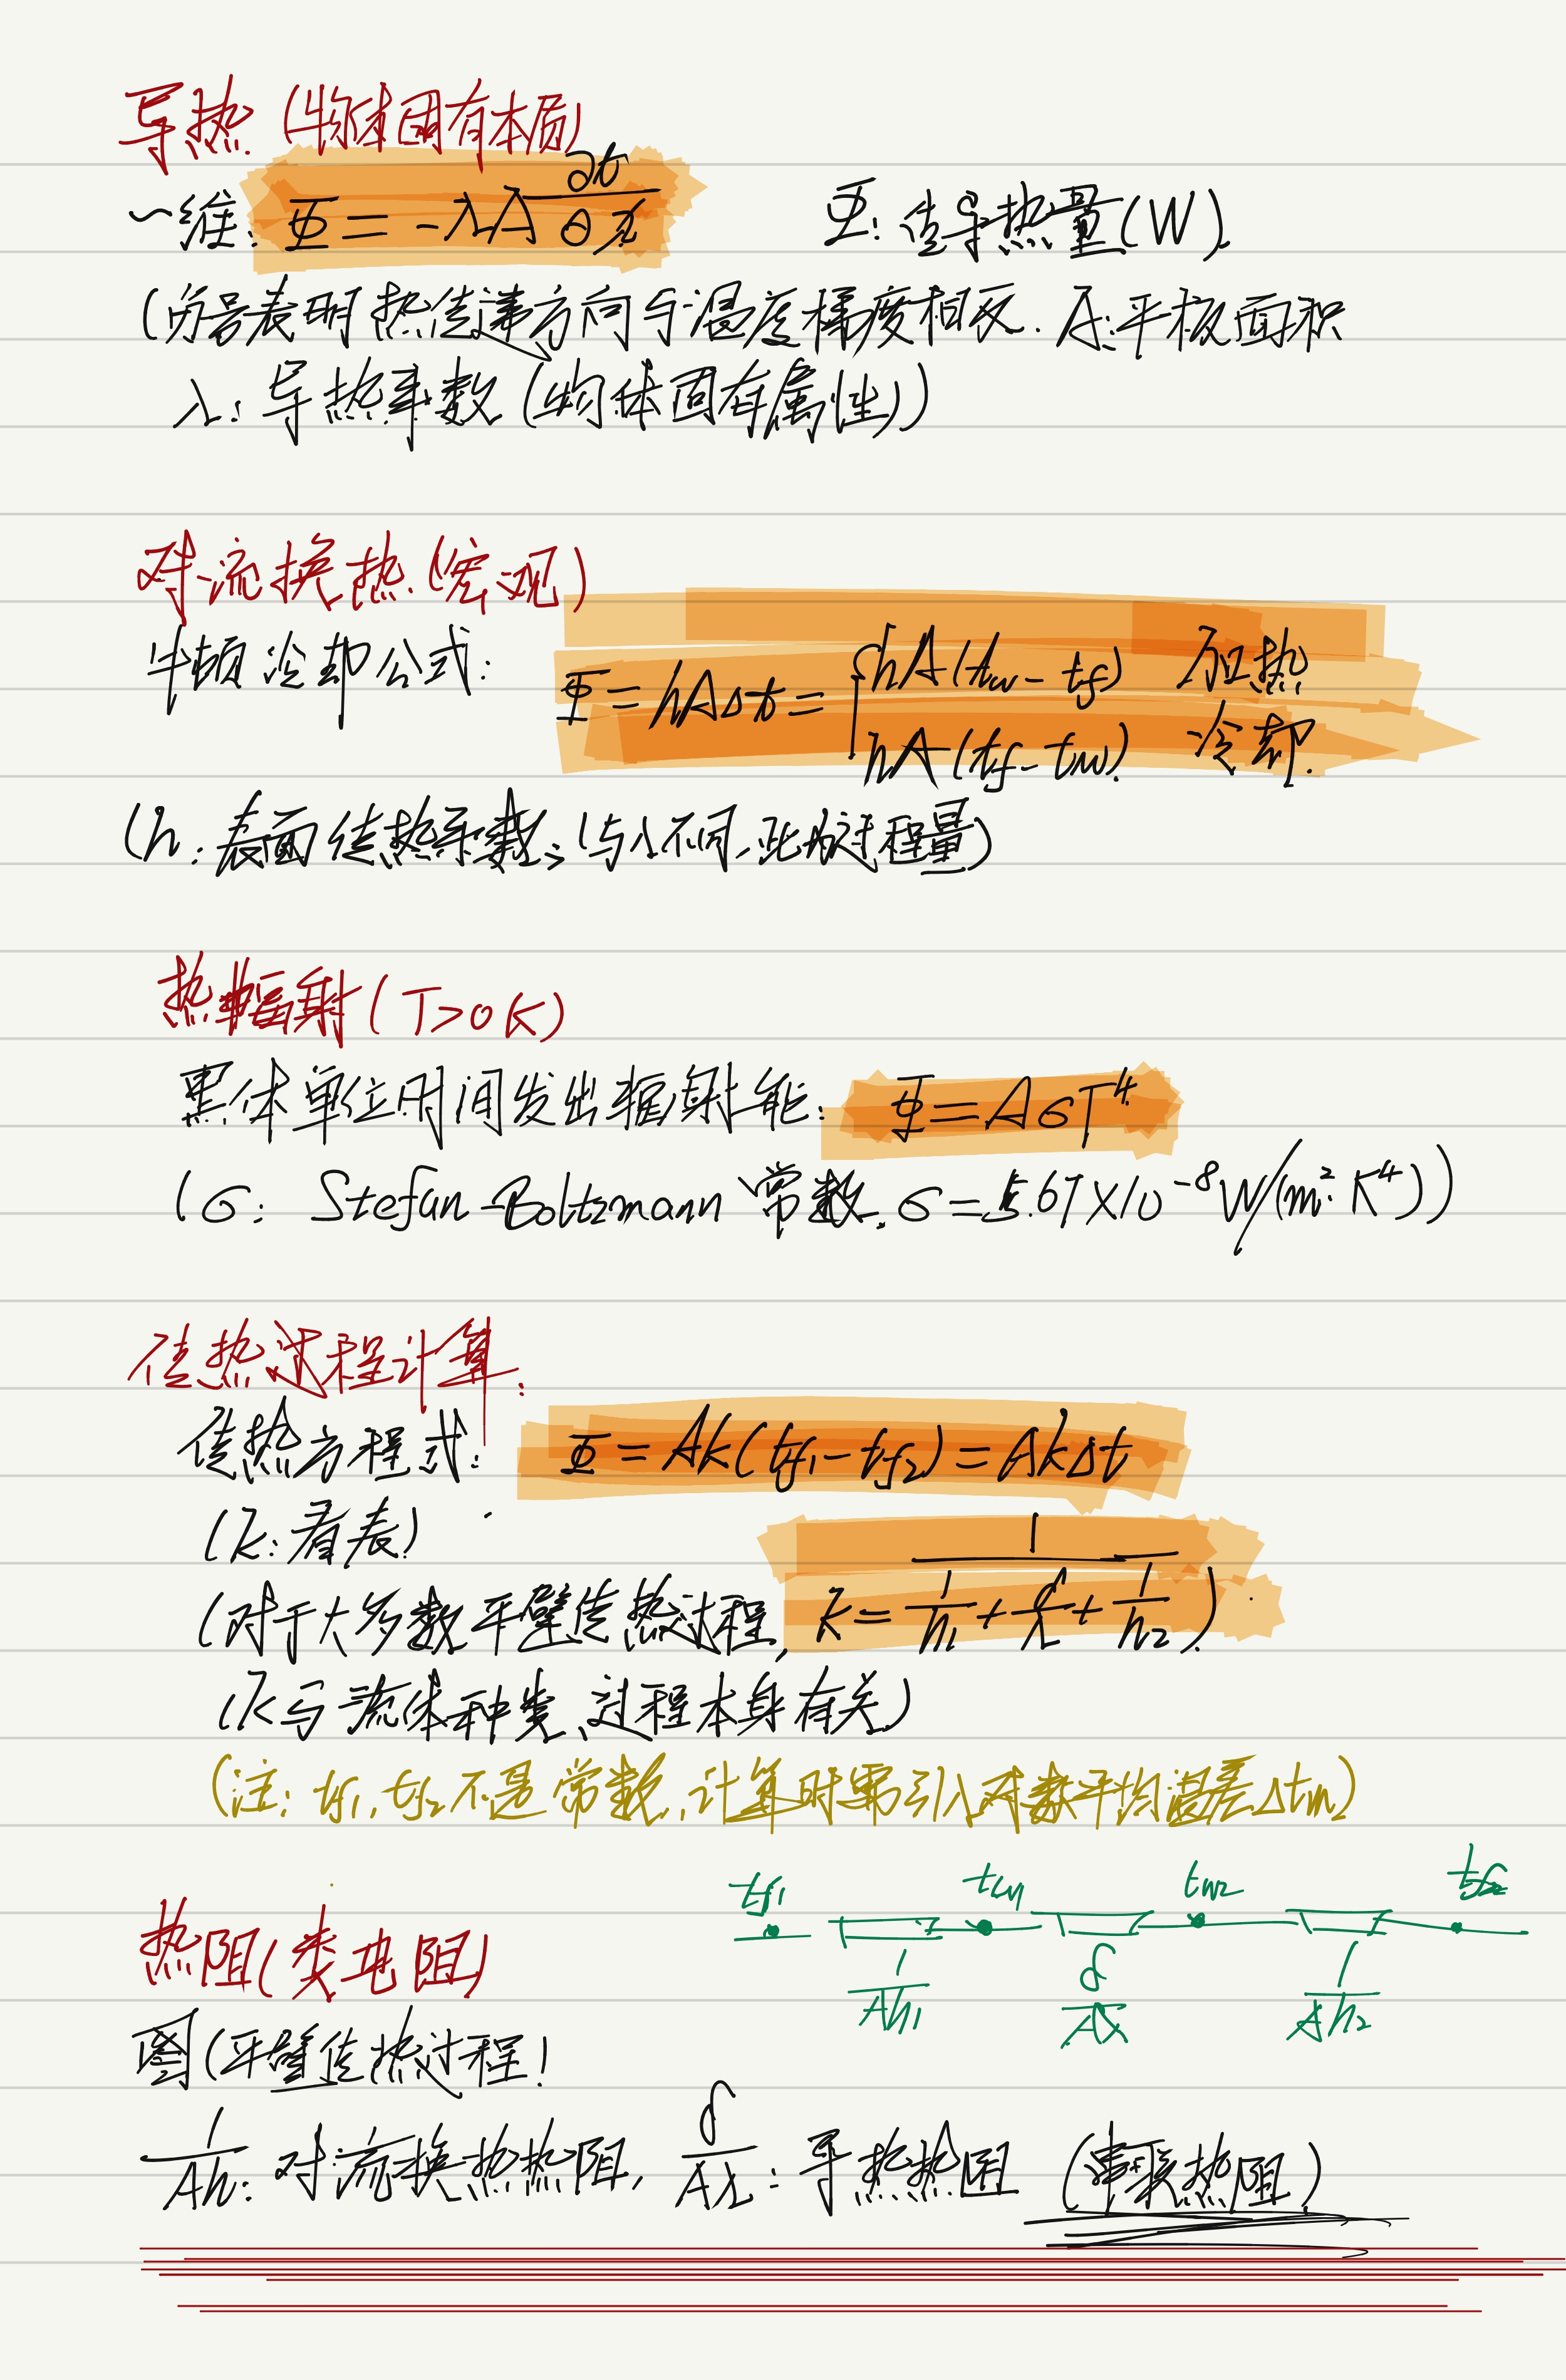 导热(物体固有本质)
一维: Φ = -λA ∂t/∂x    Φ: 传导热量(W)
(负号表明热传递方向与温度梯度相反. A:平板面积
λ: 导热系数(物体固有属性))
对流换热(宏观)
牛顿冷却公式: Φ = hAΔt = { hA(tw - tf) 加热
hA(tf - tw) 冷却.
(h: 表面传热系数,(与λ不同,此为过程量)
热辐射(T>0K)
黑体单位时间发出辐射能: Φ = AσT⁴
(σ: Stefan-Boltzmann 常数. σ = 5.67×10⁻⁸W/(m²·K⁴))
传热过程计算:
传热方程式: Φ = Ak(tf1 - tf2) = AkΔt
(k:看表)
(对于大多数平壁传热过程, k = 1/(1/h1 + δ/λ + 1/h2))
(k与流体种类、过程本身有关)
(注: tf1, tf2 不是常数,计算时需引入对数平均温差Δtm)
tf1 tw1 tw2 tf2
热阻(类电阻)
1/Ah1 δ/Aλ 1/Ah2
图(平壁传热过程)
1/Ah: 对流换热热阻, δ/Aλ: 导热热阻 (串联热阻)